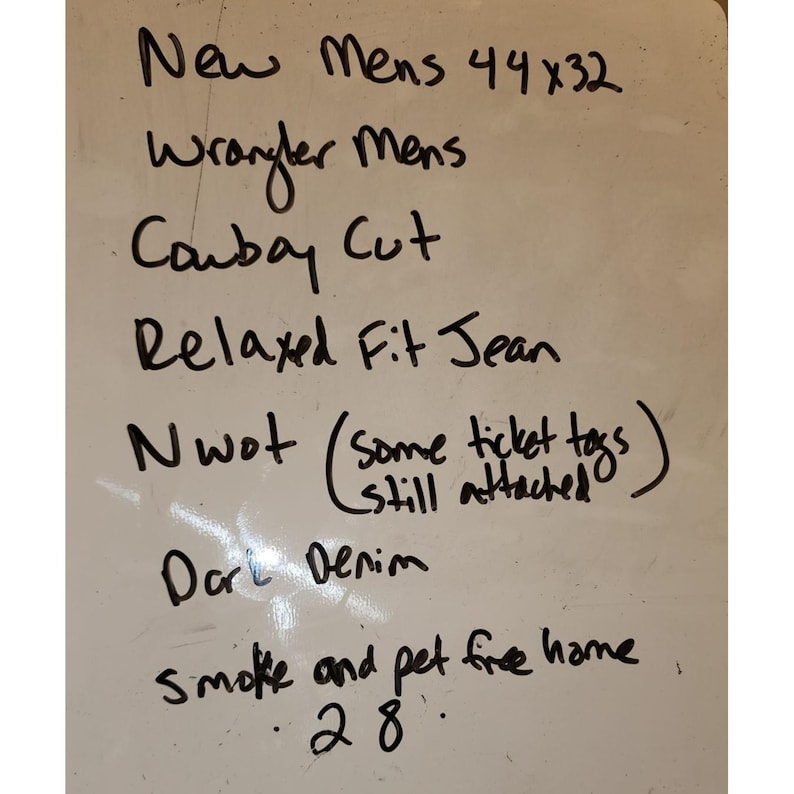 New Mens 44x32
Wrangler Mens
Cowboy Cut
Relaxed Fit Jean
Nwot (some ticket tags
still attached)
Dark Denim
smoke and pet free home
. 28 .